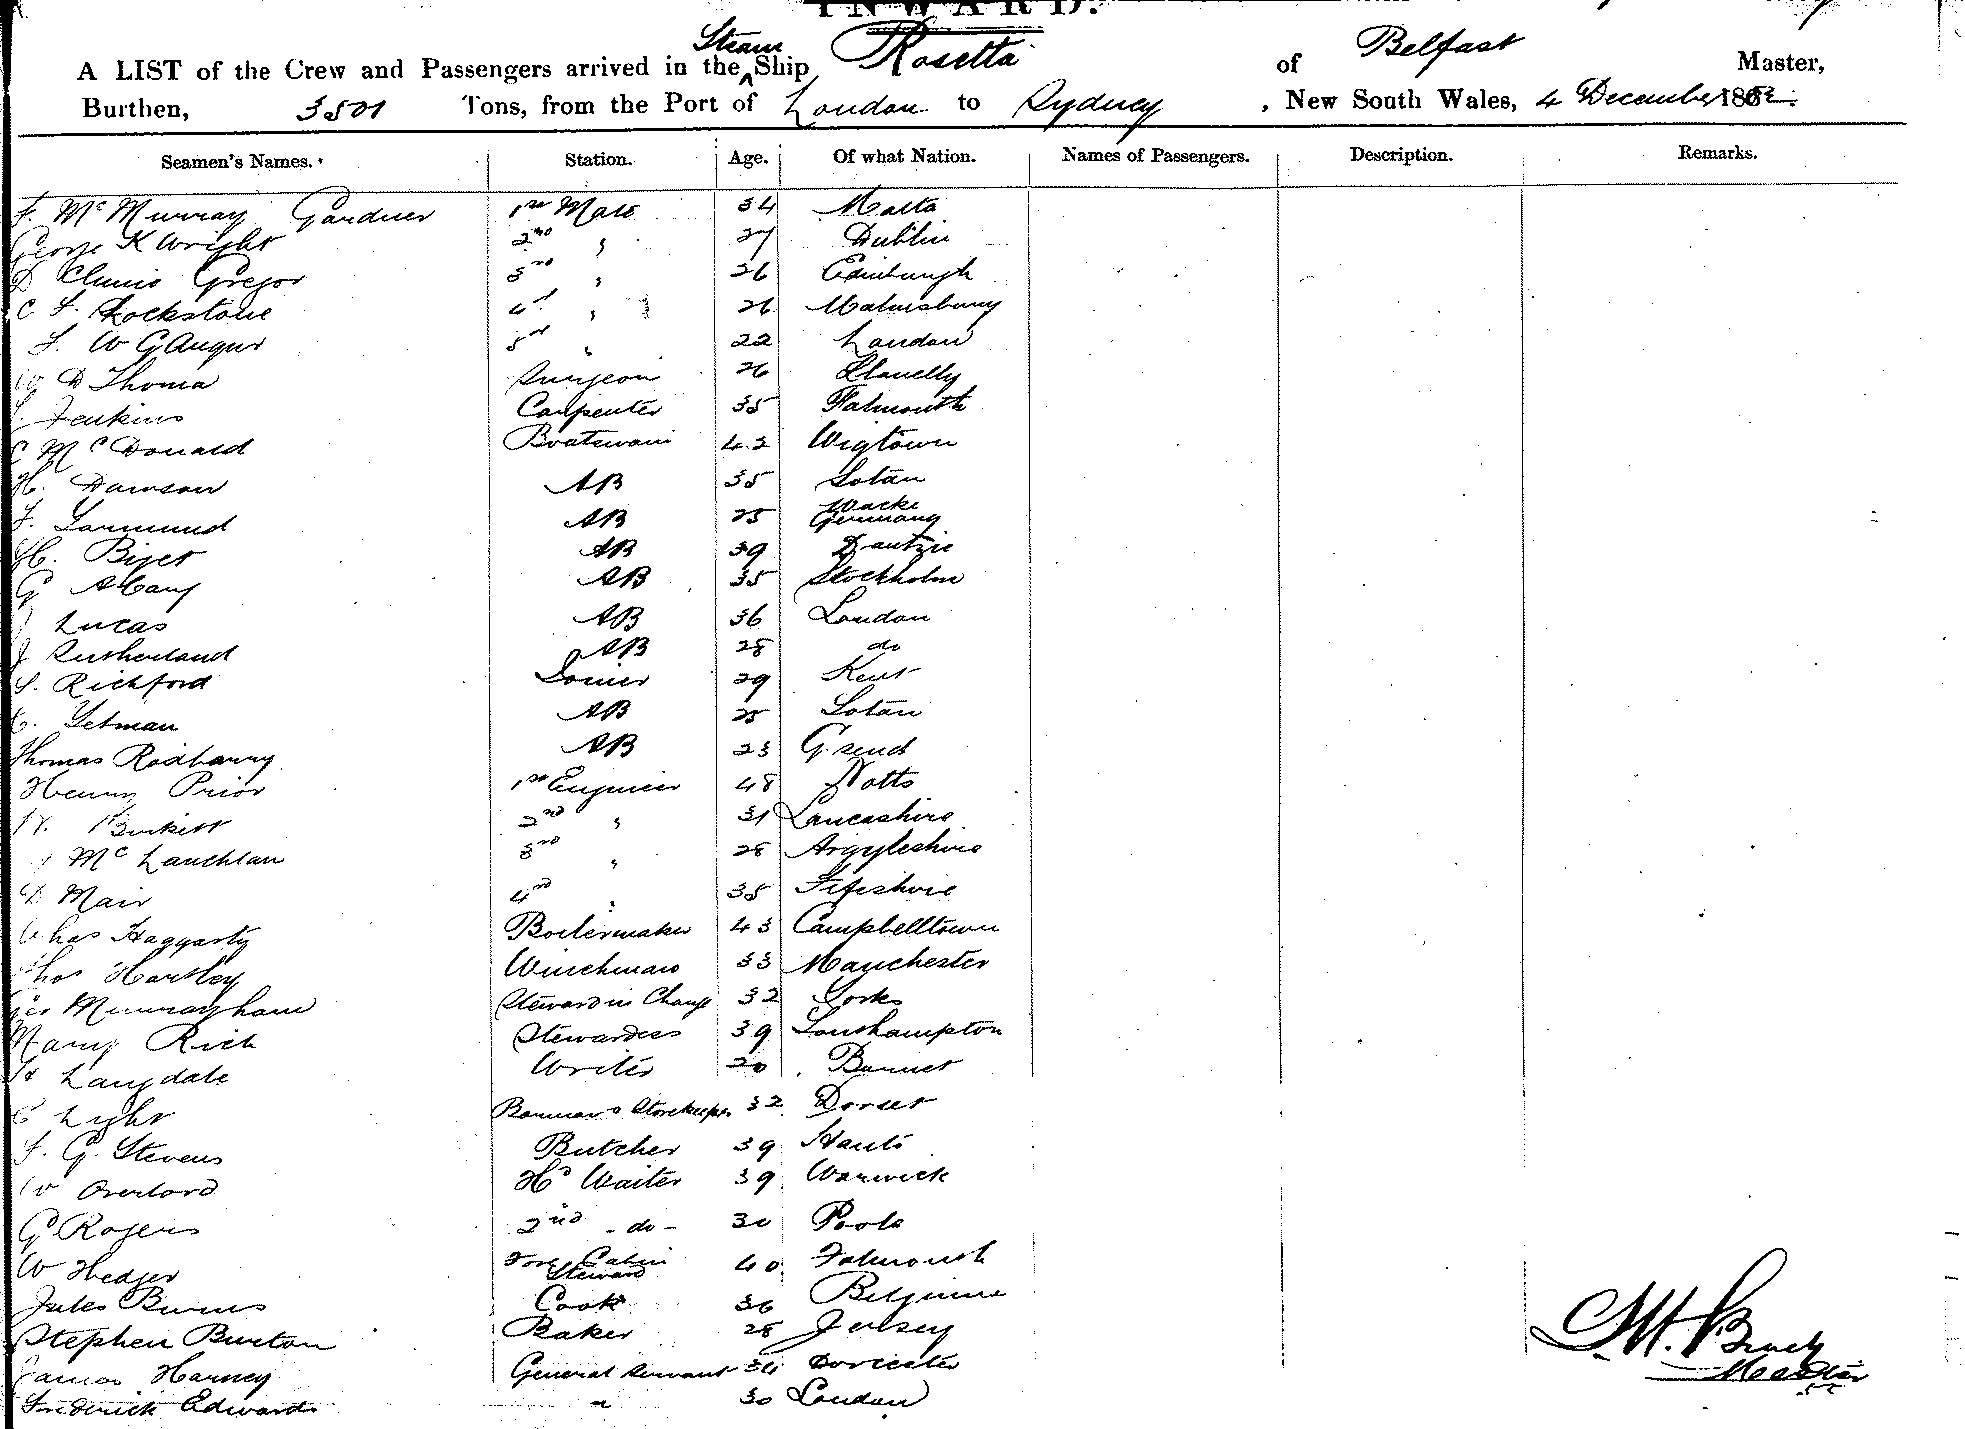 INWARD.
A LIST of the Crew and Passengers arrived in the Steam Ship Rosetta of Belfast Master,
Burthen, 3501 Tons, from the Port of London to Sydney, New South Wales, 4 December 188
Seamen's Names. Station. Age. Of what Nation. Names of Passengers. Description. Remarks.
F. McMurray Gardner 1st Mate 34 Malta
George K Wright 2nd " 27 Dublin
D Clunis Gregor 3rd " 26 Edinburgh
C F. Lockstone 4th " 26 Malmsbury
F. W G Augur 5th " 22 London
D Thoma Surgeon 26 Llanelly
Jenkins Carpenter 35 Falmouth
C McDonald Boatswain 42 Wigtown
H. Dawson AB 35 Lotan
F. AB 25 Germany
H. AB 39 Dantzic
G AB 35 Stockholm
J Lucas AB 36 London
J Sutherland AB 28 do
S. Richford 29 Kent
Yetman AB 25 Lotan
Thomas Rodbanny AB 23 G.send
Henny Prior 1st Engineer 48 Notts
Birkett 2nd " 31 Lancashire
McLauchlan 3rd " 28 Argyleshire
D. Mair 4th " 35 Fifeshire
Chas Haggarty Boilermaker 43 Campbelltown
Thos Hartley Winchman 33 Manchester
Murrayham Steward in Charge 32 Yorks
Mary Rich Stewardess 39 Southampton
Langdale Writer 20 Barnet
C Light Storekeeper 32 Dorset
F. G. Stevens Butcher 39 Hants
W Overlord Hd Waiter 39 Warwick
G Rogers 2nd - do - 30 Poole
W Hedger Fore Cabin Steward 40 Falmouth
Jules Burns Cook 36 Belgium
Stephen Burton Baker 28 Jersey
James Harney General Servant 34 Dorcester
Frederick Edwards " 30 London
Master